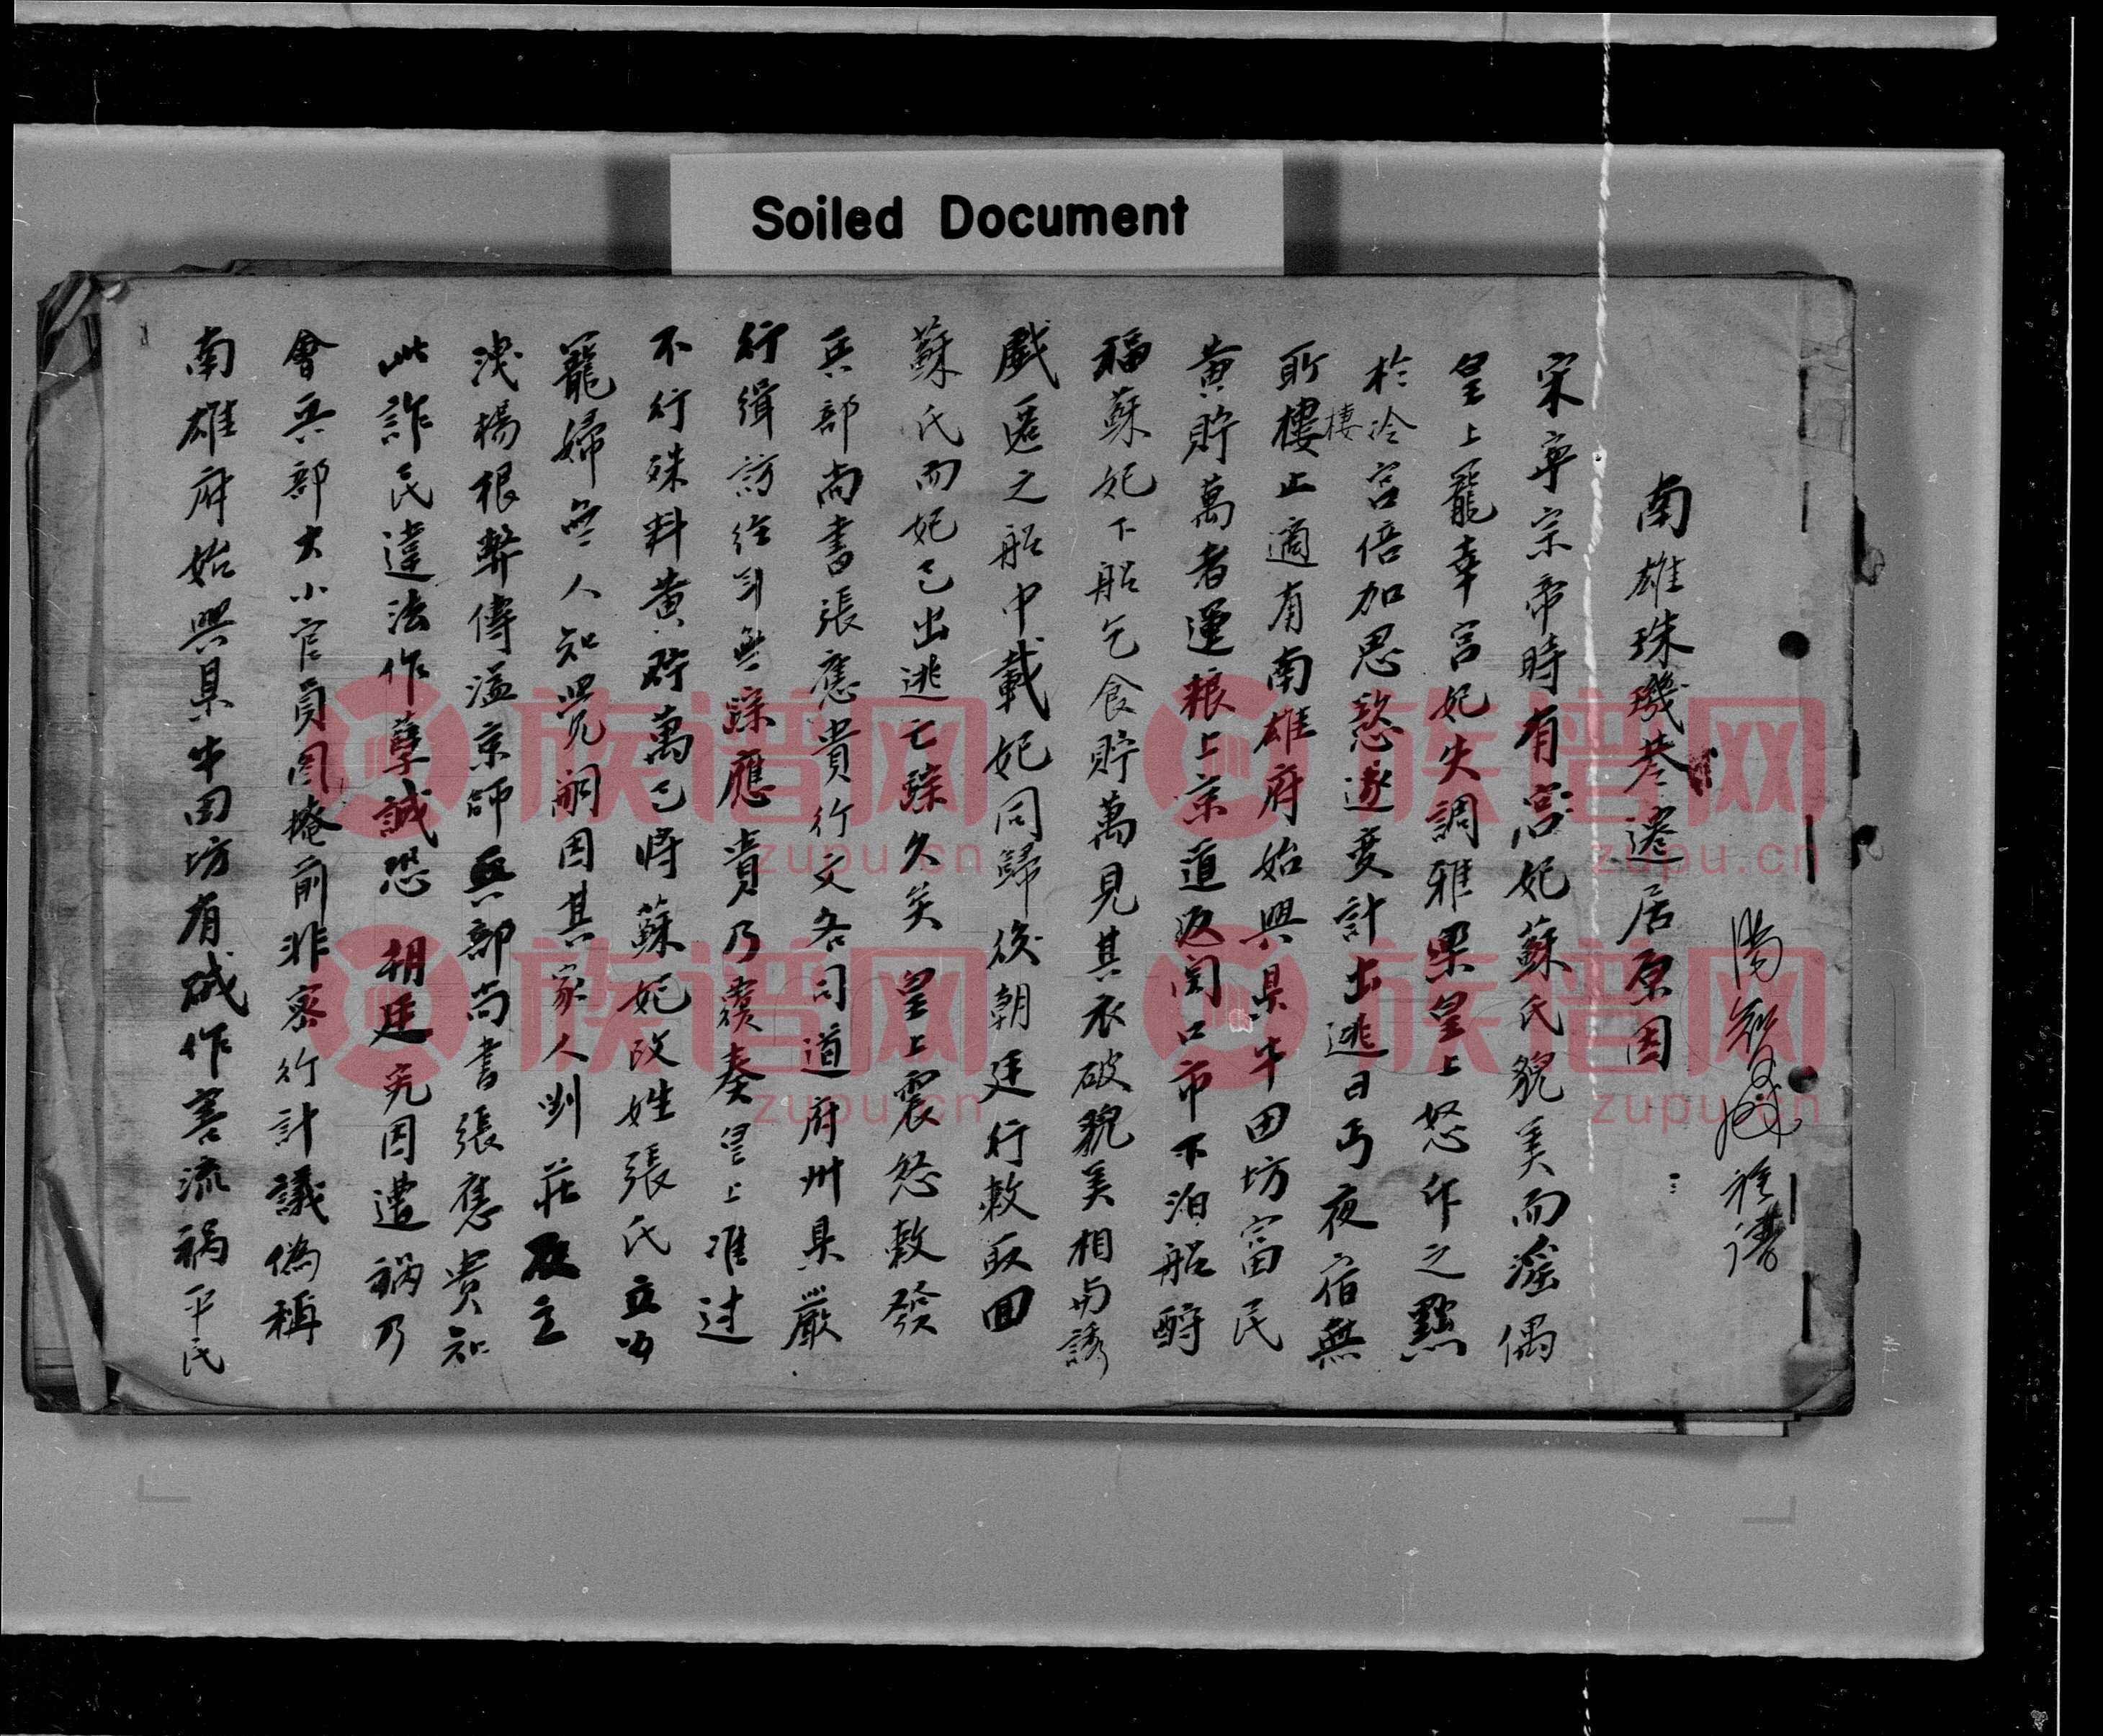 Soiled Document
南雄珠璣巷遷居原因
宋寧宗帝時有宮妃蘇氏貌美而滛偶
皇上寵幸宮妃失調雅樂皇上怒作之黜
於冷宮倍加思愁遂变計出逃日丐夜宿無
所樓止適有南雄府始興県牛田坊富民
棲
黄貯萬者運粮上京道返関口市下泊船酧
福蘇妃下船乞食貯萬見其衣破貌美相与誘
戲匿之船中載妃同歸後朝廷行敕取回
蘇氏而妃已出逃亡踪久矣 皇上震怒敕發
兵部尚書張應貴行文各司道府州県嚴
行緝訪經年無踪應貴乃覆奏皇上准过
不行殊料黄貯萬已将蘇妃改姓張氏立為
寵婦無人知覺嗣因其家人刘莊及立
洩楊根弊傳溢京師兵部尚書張應貴知
此詐民違法作孽誠恐 朝廷究因遭禍乃
會兵部大小官員图掩前非密行計議偽稱
南雄府始興県牛田坊有賊作害流禍平民
族谱网
zupu.cn
族谱网
zupu.cn
族谱网
zupu.cn
族谱网
zupu.cn